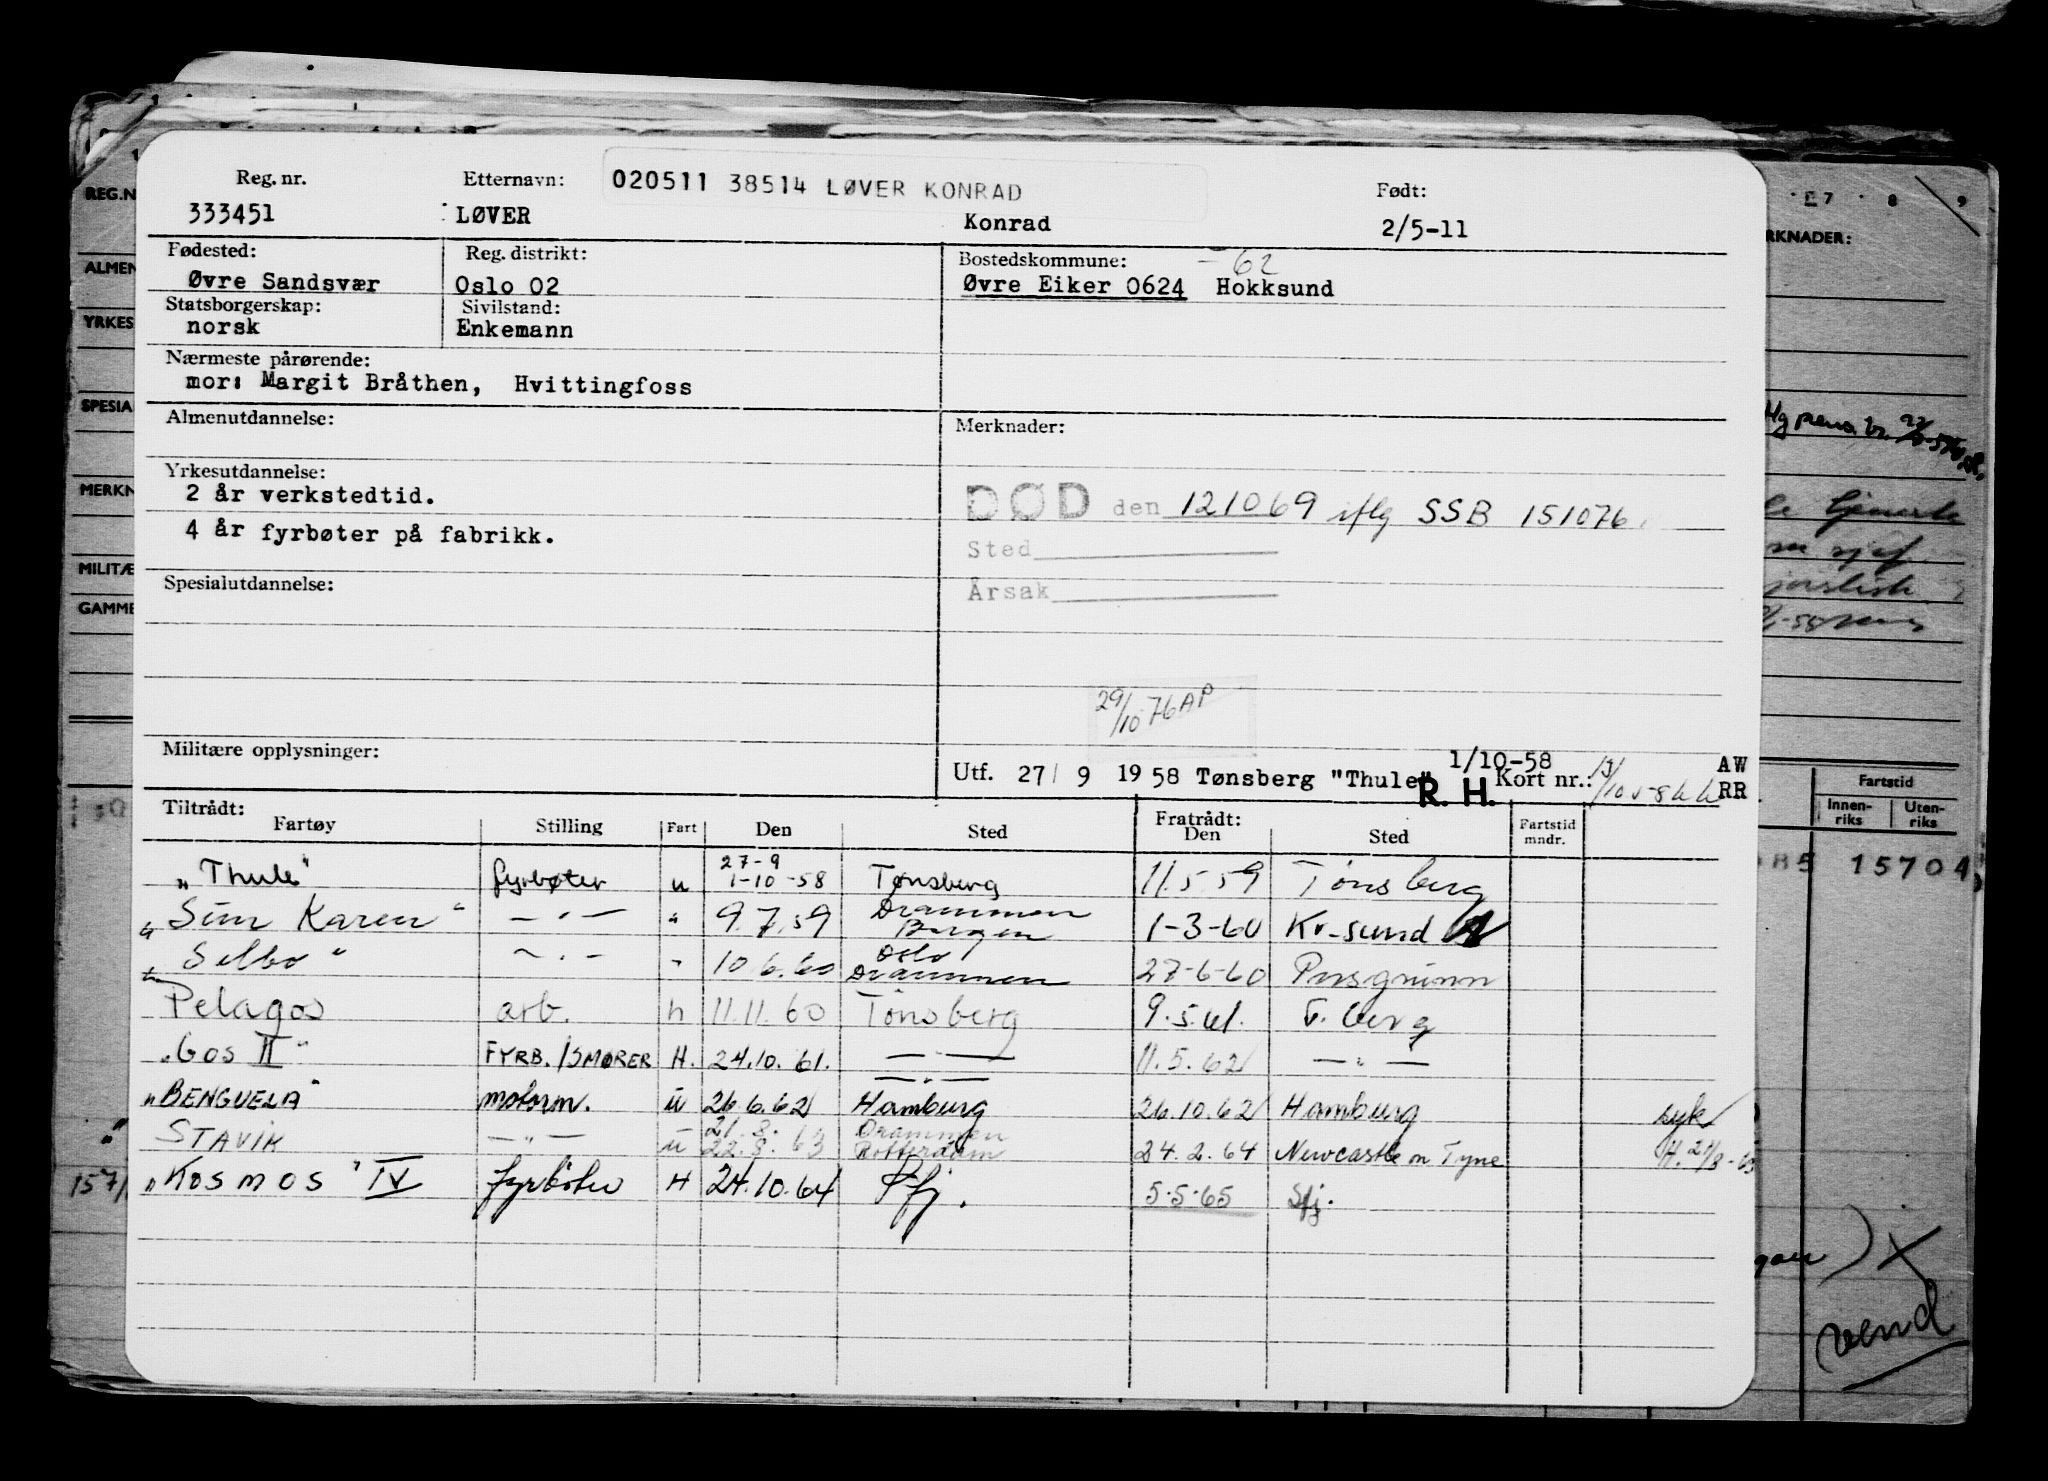 Reg. nr. Etternavn: 020511 38514 LØVER KONRAD Født:
333451 LØVER Konrad 2/5-11
Fødested: Reg. distrikt: Bostedskommune: -62
Øvre Sandsvær Oslo 02 Øvre Eiker 0624 Hokksund
Statsborgerskap: Sivilstand:
norsk Enkemann
Nærmeste pårørende:
mor: Margit Bråthen, Hvittingfoss
Almenutdannelse: Merknader:
Yrkesutdannelse:
2 år verkstedtid.
DØD den 121069 iflg SSB 151076
4 år fyrbøter på fabrikk.
Sted
Spesialutdannelse: Årsak
29/10 76 AP
Militære opplysninger:
Utf. 27/ 9 1958 Tønsberg "Thule" 1/10-58 R. H. Kort nr.: AW RR
Tiltrådt: Fratrådt:
Fartøy Stilling Fart Den Sted Den Sted Fartstid mndr.
"Thule" fyrbøter u 27-9 1-10-58 Tønsberg 11.5.59 Tønsberg
"Sun Karen" — " — " 9.7.59 Drammen Bergen 1-3-60 Kr-sund N
"Selbo" — " — " 10.6.60 Oslo Drammen 27-6-60 Porsgrunn
Pelagos arb. h 11.11.60 Tønsberg 9.5.61. T.berg
"Gos II" FYRB./SMØRER H. 24.10.61. — " — 11.5.62 — " —
— " —
"BENGUELA" motorm. u 26.6.62 Hamburg 26.10.62 Hamburg syk
"STAVIK — " — u 21.8. 22.8.63 Drammen Rotterdam 24.2.64 Newcastle on Tyne
"KOSMOS" IV fyrbøter H 24.10.64 Sfj. 5.5.65 Sfj.
REG.N
ALMEN
YRKES
SPESIA
MERKN
MILITÆ
GAMME
7 8 9
RKNADER:
Fartstid
Innenriks Utenriks
15704
157/
vend